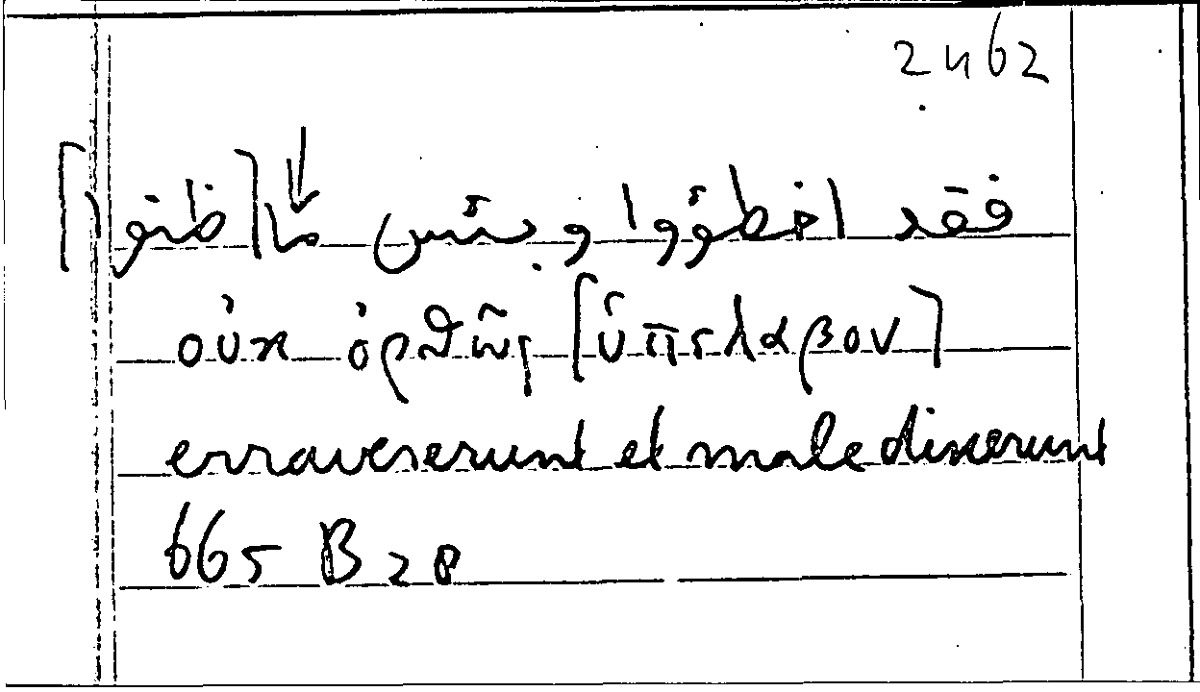 2462
فقد اخطؤوا وبئس ما [ظنوا]
οὐκ ὀρθῶς [ὑπέλαβον]
erraverunt et male dixerunt
665 B 28